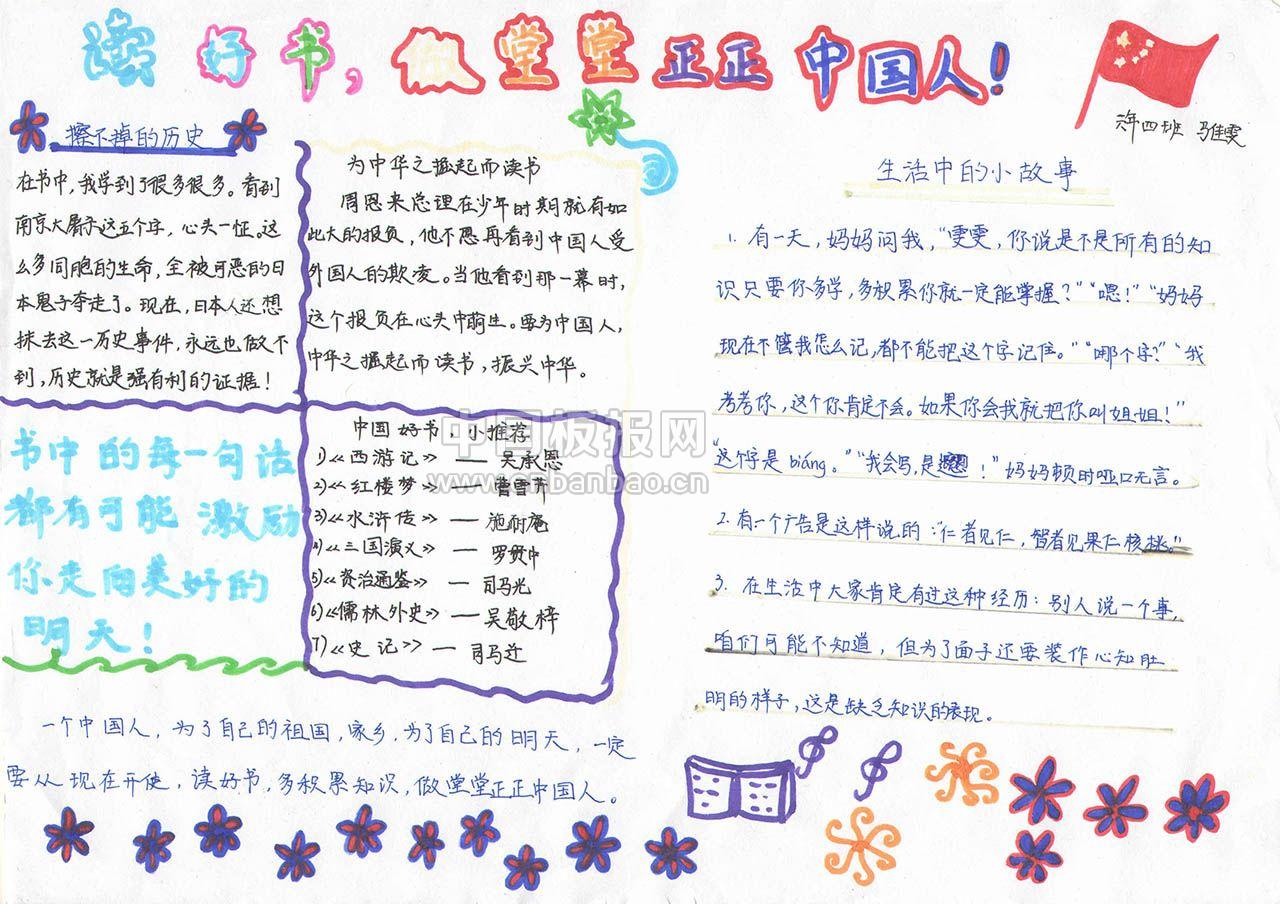 读好书，做堂堂正正中国人！
六年四班 马佳雯
擦不掉的历史
在书中，我学到了很多很多。看到
南京大屠杀这五个字，心头一怔。这
么多同胞的生命，全被可恶的日
本鬼子夺走了。现在，日本人还想
抹去这一历史事件，永远也做不
到，历史就是强有利的证据！
为中华之掘起而读书
周恩来总理在少年时期就有如
此大的报负，他不愿再看到中国人受
外国人的欺凌。当他看到那一幕时，
这个报负在心头中萌生。要为中国人，
中华之掘起而读书，振兴中华。
书中的每一句话
都有可能激励
你走向美好的
明天！
中国好书，小推荐
1)《西游记》——吴承恩
2)《红楼梦》——曹雪芹
3)《水浒传》—施耐庵
4)《三国演义》—罗贯中
5)《资治通鉴》—司马光
6)《儒林外史》—吴敬梓
7)《史记》—司马迁
一个中国人，为了自己的祖国，家乡，为了自己的明天，一定
要从现在开使，读好书，多积累知识，做堂堂正正中国人。
生活中的小故事
1. 有一天，妈妈问我，“雯雯，你说是不是所有的知
识只要你多学，多积累你就一定能掌握？”“嗯！”“妈妈
现在不管我怎么记，都不能把这个字记住。”“哪个字？”“我
考考你，这个你肯定不会。如果你会我就把你叫姐姐！”
“这个字是biáng。”“我会写，是！”妈妈顿时哑口无言。
2. 有一个广告是这样说的：“仁者见仁，智者见果仁核桃。”
3. 在生活中大家肯定有过这种经历：别人说一个事，
咱们可能不知道，但为了面子还要装作心知肚
明的样子，这是缺乏知识的表现。
中国板报网
www.cnbanbao.cn